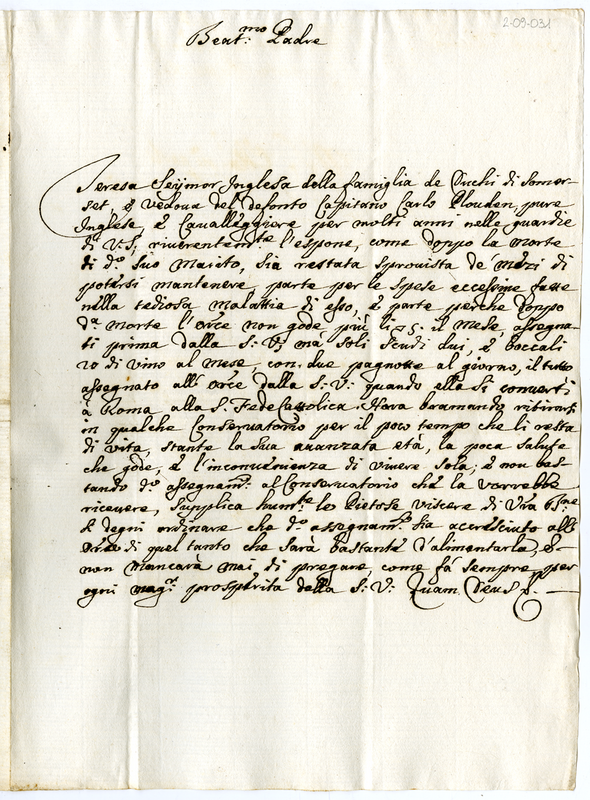 2-09-031
Beat.mo Padre
Teresa Seijmor Inglesa della famiglia de Duchi di Somer-
set, è Vedoua del defonto Capitano Carlo Plouden, pure
Inglese, è Cauallèggiere per molti anni nelle guardie
di V.S, riuerentem.te l'espone, come doppo la morte
di d.o suo Marito, sia restata sprouista de' mezi di
potersi mantenere, parte per le spese eccessiue fatte
nella tediosa malattia di esso, è parte perche doppo
d.a morte l'Or.ce non gode più li 5: il mese, assegna-
ti prima dalla S: V: mà soli scudi dui, è boccali
20 di vino al mese, con due pagnotte al giorno, il tutto
assegnato all'Or.ce dalla S: V: quando ella si conuertì
à Roma alla S. Fede Cattolica. Hora bramando ritirarsi
in qualche Conseruatorio per il poco tempo che li resta
di vita, stante la sua auanzata età, la poca salute
che gode, è l'inconuenienza di viuere sola; è non bas-
tando d.o assegnam.to al Conseruatorio chè la vorrebbe
riceuere, supplica hum.te le Pietose viscere di V'ra B.ne
si degni ordinare che d.o assegnam.to sia accresciuto all'
Or.ce di quel tanto che sarà bastante d'alimentarla, è
non mancarà mai di pregare, come fà sempre, per
ogni mag.r prosperità della S: V: Quam Deus &.